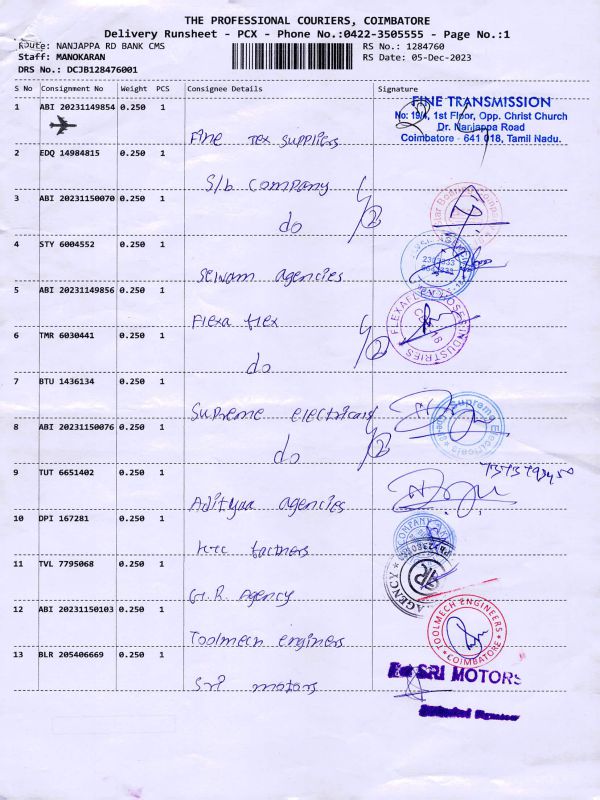 THE PROFESSIONAL COURIERS, COIMBATORE
Delivery Runsheet - PCX - Phone No.:0422-3505555 - Page No.:1
Route: NANJAPPA RD BANK CMS
RS No.: 1284760
Staff: MANOKARAN
RS Date: 05-Dec-2023
DRS No.: DCJB128476001
S No Consignment No Weight PCS Consignee Details Signature
1 ABI 20231149854 0.250 1
FINE TRANSMISSION
No: 19/4, 1st Floor, Opp. Christ Church
Dr. Nanjappa Road
Coimbatore - 641 018, Tamil Nadu.
Fine Tex suppliers
2 EDQ 14984815 0.250 1
S/b company
3 ABI 20231150070 0.250 1
do
4 STY 6004552 0.250 1
Selvam agencies
5 ABI 20231149856 0.250 1
Flexa flex
FLEXAFLEX HOSES INDUSTRIES
6 TMR 6030441 0.250 1
do
7 BTU 1436134 0.250 1
Supreme electricals
Supreme Electricals
8 ABI 20231150076 0.250 1
do
9 TUT 6651402 0.250 1
Adityaa agencies
10 DPI 167281 0.250 1
11 TVL 7795068 0.250 1
G.R. Agency
AGENCY
12 ABI 20231150103 0.250 1
Toolmech enginers
TOOLMECH ENGINEERS
COIMBATORE
13 BLR 205406669 0.250 1
Sri motors
For SRI MOTORS